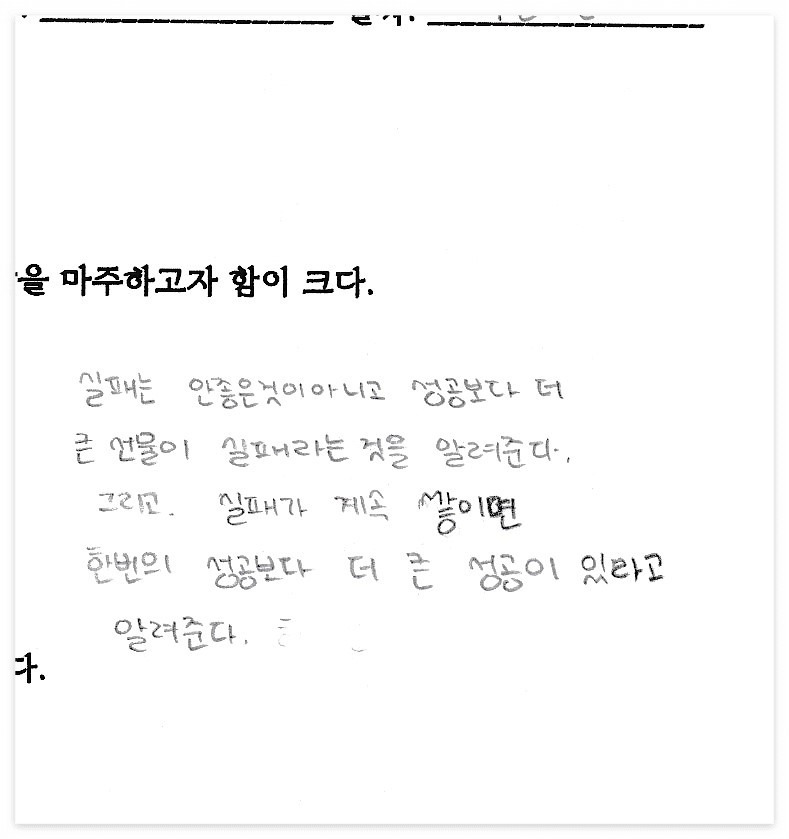 을 마주하고자 함이 크다.
실패는 안좋은것이아니고 성공보다 더
큰 선물이 실패라는 것을 알려준다.
그리고. 실패가 계속 쌓이면
한번의 성공보다 더 큰 성공이 있라고
알려준다.
다.